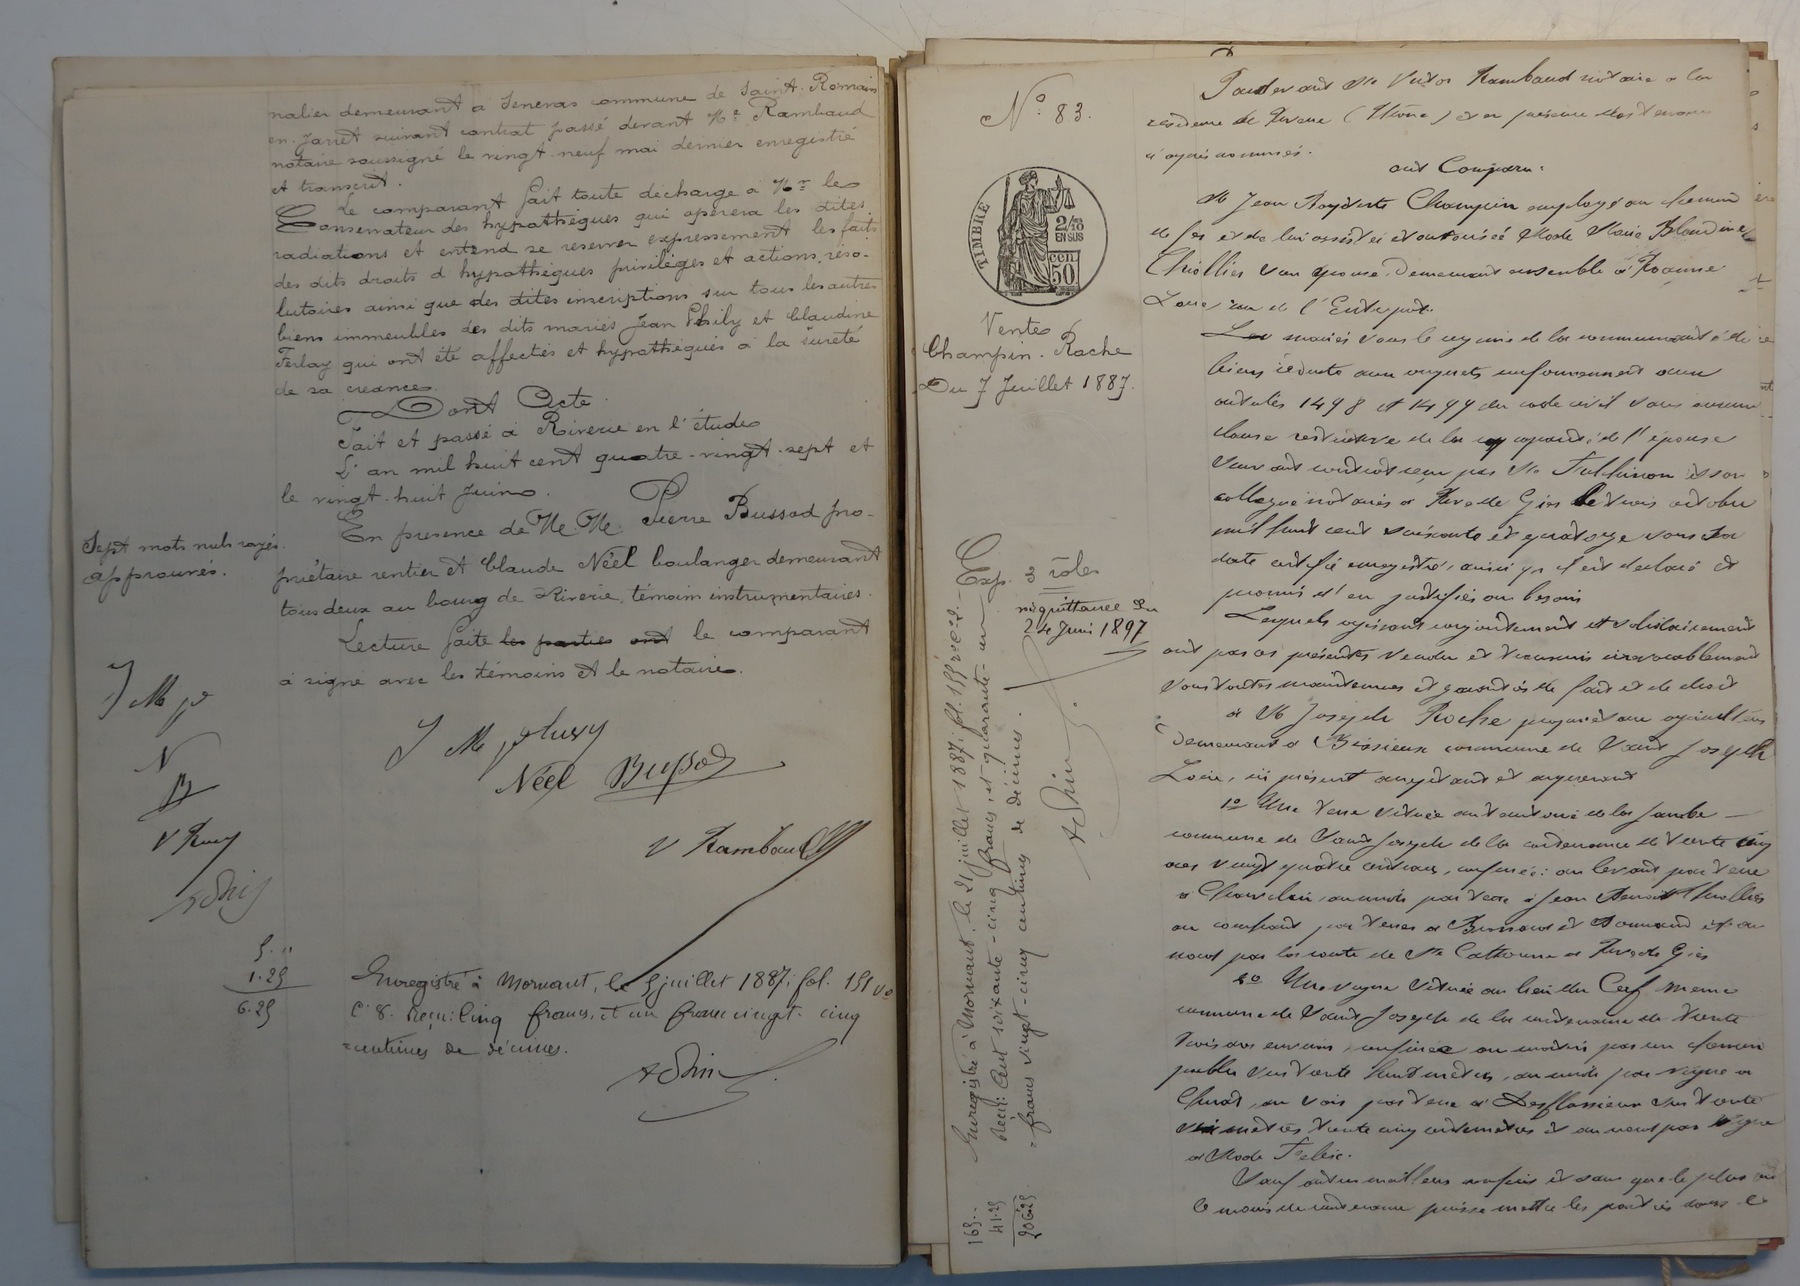 nalier demeurant à Seneras commune de Saint-Romain
en-Jarret suivant contrat passé devant Me Rambaud
notaire soussigné le vingt-neuf mai dernier enregistré
et transcrit.
Le comparant fait toute décharge à Mr le
Conservateur des hypothèques qui opèrera les dites
radiations et entend se reserver expressement les faits
des dits droits d'hypothèques privilèges et actions réso-
lutoires ainsi que des dites inscriptions sur tous les autres
biens immeubles des dits mariés Jean Phily et Claudine
Ferlay qui ont été affectés et hypothéqués à la sûreté
de sa créance.
Dont Acte.
Fait et passé à Riverie en l'étude
L'an mil huit cent quatre-vingt-sept et
le vingt-huit Juin.
En presence de M.M. Pierre Bussod pro-
priétaire rentier et Claude Néel boulanger demeurant
tous deux au bourg de Riverie, témoins instrumentaires.
Lecture faite les parties ont le comparant
a signé avec les témoins et le notaire.
Sept mots nuls rayés
approuvés.
J M
N
B
V Ram
J M
Néel Bussod
V Rambaud
5. "
1.25
6.25
Enregistré à Mornant, le 5 juillet 1887, fol. 151 Vo
C. 8. Reçu: Cinq francs, et un franc vingt-cinq
centimes de décimes.
No. 83.
TIMBRE
2/10
EN SUS
50 CEN
Vente
Champin-Roche
Du 7 Juillet 1887.
Exp. 2 rôles
quittance du
24 Juin 1897
Enregistré à Mornant, le 21 juillet 1887, fol.
Reçu: Cent soixante-cinq francs, et quarante-un
francs vingt-cinq centimes de décimes.
165..
41.25
206.25
Pardevant Me Victor Rambaud notaire à la
résidence de Riverie (Rhône) et en présence des témoins
ci après nommés.
ont Comparu:
M Jean Baptiste Champin employé au chemin
de fer et de lui assistée et autorisée Mode Marie Blandine
Chollier son épouse, demeurant ensemble à Roanne
Loire, rue de l'Entrepôt.
Les mariés sous le régime de la communauté de
biens réduite aux acquets conformement aux
articles 1498 et 1499 du code civil sans aucune
clause restrictive de la capacité de l'épouse
suivant contrat reçu par Me et son
collègue notaires à Rive de Gier le trois octobre
mil huit cent soixante et quatorze sous sa
date certifié enregistré, ainsi qu'il est déclaré et
promis d'en justifier au besoin
Lesquels agissant conjointement et solidairement
ont par ces présentes vendu et transmis irrévocablement
sous toutes maintenues et garanties de fait et de droit
à M Joseph Roche propriétaire agriculteur
demeurant à Bissieux commune de Saint Joseph
Loire, ici présent acceptant et acquerant
1o Une terre située au territoire de la Jambe
commune de Saint Joseph de la contenance de trente cinq
ares vingt quatre centiares, confinée: au levant par terre
à Chavelin, au midi par terre à Jean Benoit Chollier
au couchant par terres à Bernard et et au
nord par la route de Ste Catherine à Rive de Gier
2o Une vigne située au lieu du Cerf meme
commune de Saint Joseph de la contenance de trente
trois ares environ, confinée au matin par un chemin
public sur trente huit mètres, au midi par vigne à
Chirat, au soir par terre à Desflassieux sur trente
six mètres trente cinq centimètres et au nord par vigne
à Mode Felix.
Sauf autres meilleurs confins et sans que le plus ou
le moins de contenance puisse mettre les parties dans le